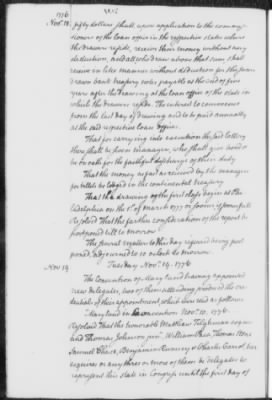 1776
Nov. 18.
fifty dollars shall upon application to the commis-
sioners of the loan office in the respective states where
the drawer resides, receive their money without any
deduction, and all prizes above that sum shall
receive in like manner without deduction for the sum
drawn bank treasury notes payable at the end of five
years after the drawing at the loan office of the state in
which the drawer resides. The interest to commence
from the last day of drawing and to be paid annually
at the said respective loan offices.
That for carrying into execution the said lottery
there shall be seven managers, who shall give bond &
be on oath for the faithful discharge of their duty
That the money as fast as received by the managers
for tickets be lodged in the continental treasury
That the drawing of the first class begin at
Philadelphia on the 1st of March 1777 or sooner if possible
Resolved That the farther consideration of the report be
postponed till to morrow
The several matters to this day referred being post
poned, Adjourned to 10 o'clock to morrow.
Tuesday Nov. 19. 1776
Nov. 19
The Convention of Maryland having appointed
new delegates, two of them attending produced the cre-
dentials of their appointment which were read as follows
Maryland in convention Nov. 10. 1776.
Resolved That the honorable Matthew Tilghman esquire
and Thomas Johnson junr. William Paca, Thomas Stone
Samuel Chase, Benjamin Rumsey & Charles Carroll bar.
esquires or any three or more of them be delegates to
represent this state in Congress until the first day of